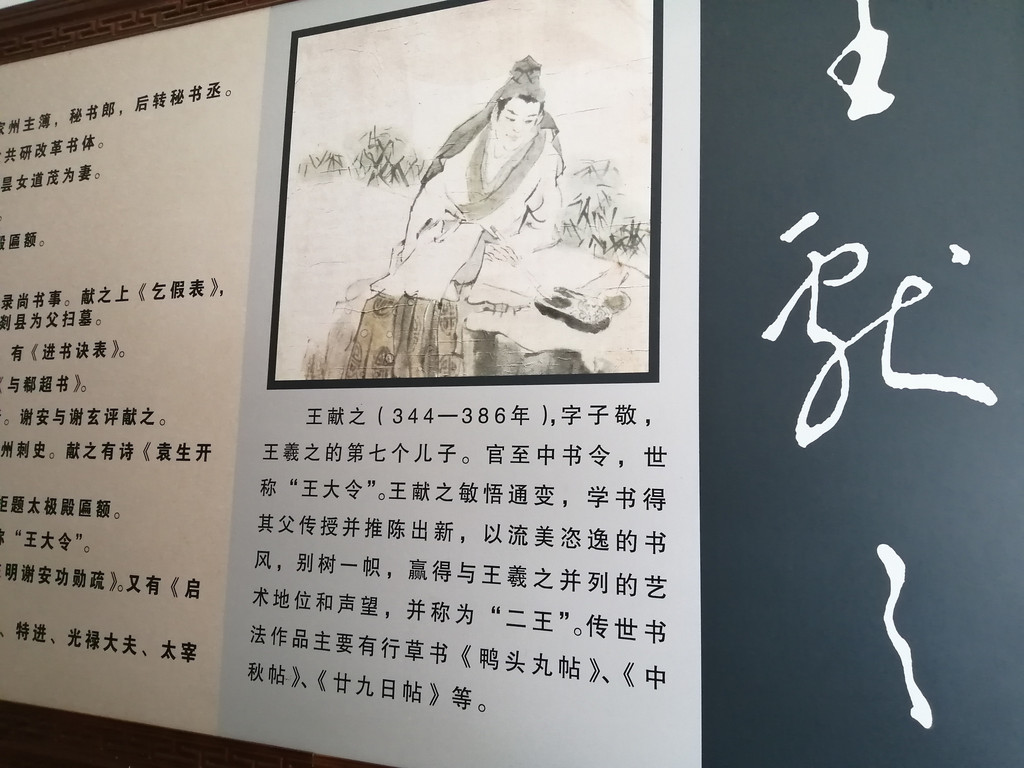 家州主簿，秘书郎，后转秘书丞。
共研改革书体。
昙女道茂为妻。
殿匾额。
录尚书事。献之上《乞假表》，
剡县为父扫墓。
有《进书诀表》。
《与郗超书》。
。谢安与谢玄评献之。
州刺史。献之有诗《袁生开
拒题太极殿匾额。
称“王大令”。
明谢安功勋疏》。又有《启
、特进、光禄大夫、太宰
王献之（344—386年），字子敬，
王羲之的第七个儿子。官至中书令，世
称“王大令”。王献之敏悟通变，学书得
其父传授并推陈出新，以流美恣逸的书
风，别树一帜，赢得与王羲之并列的艺
术地位和声望，并称为“二王”。传世书
法作品主要有行草书《鸭头丸帖》、《中
秋帖》、《廿九日帖》等。
王献之